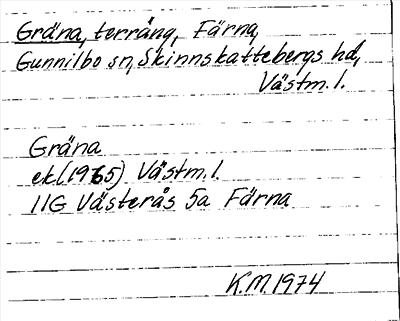 Gräna, terräng, Färna,
Gunnilbo sn, Skinnskattebergs hd,
Västm. l.
Gräna
ek. (1965) Västm. l.
11G Västerås 5a Färna
K.M. 1974